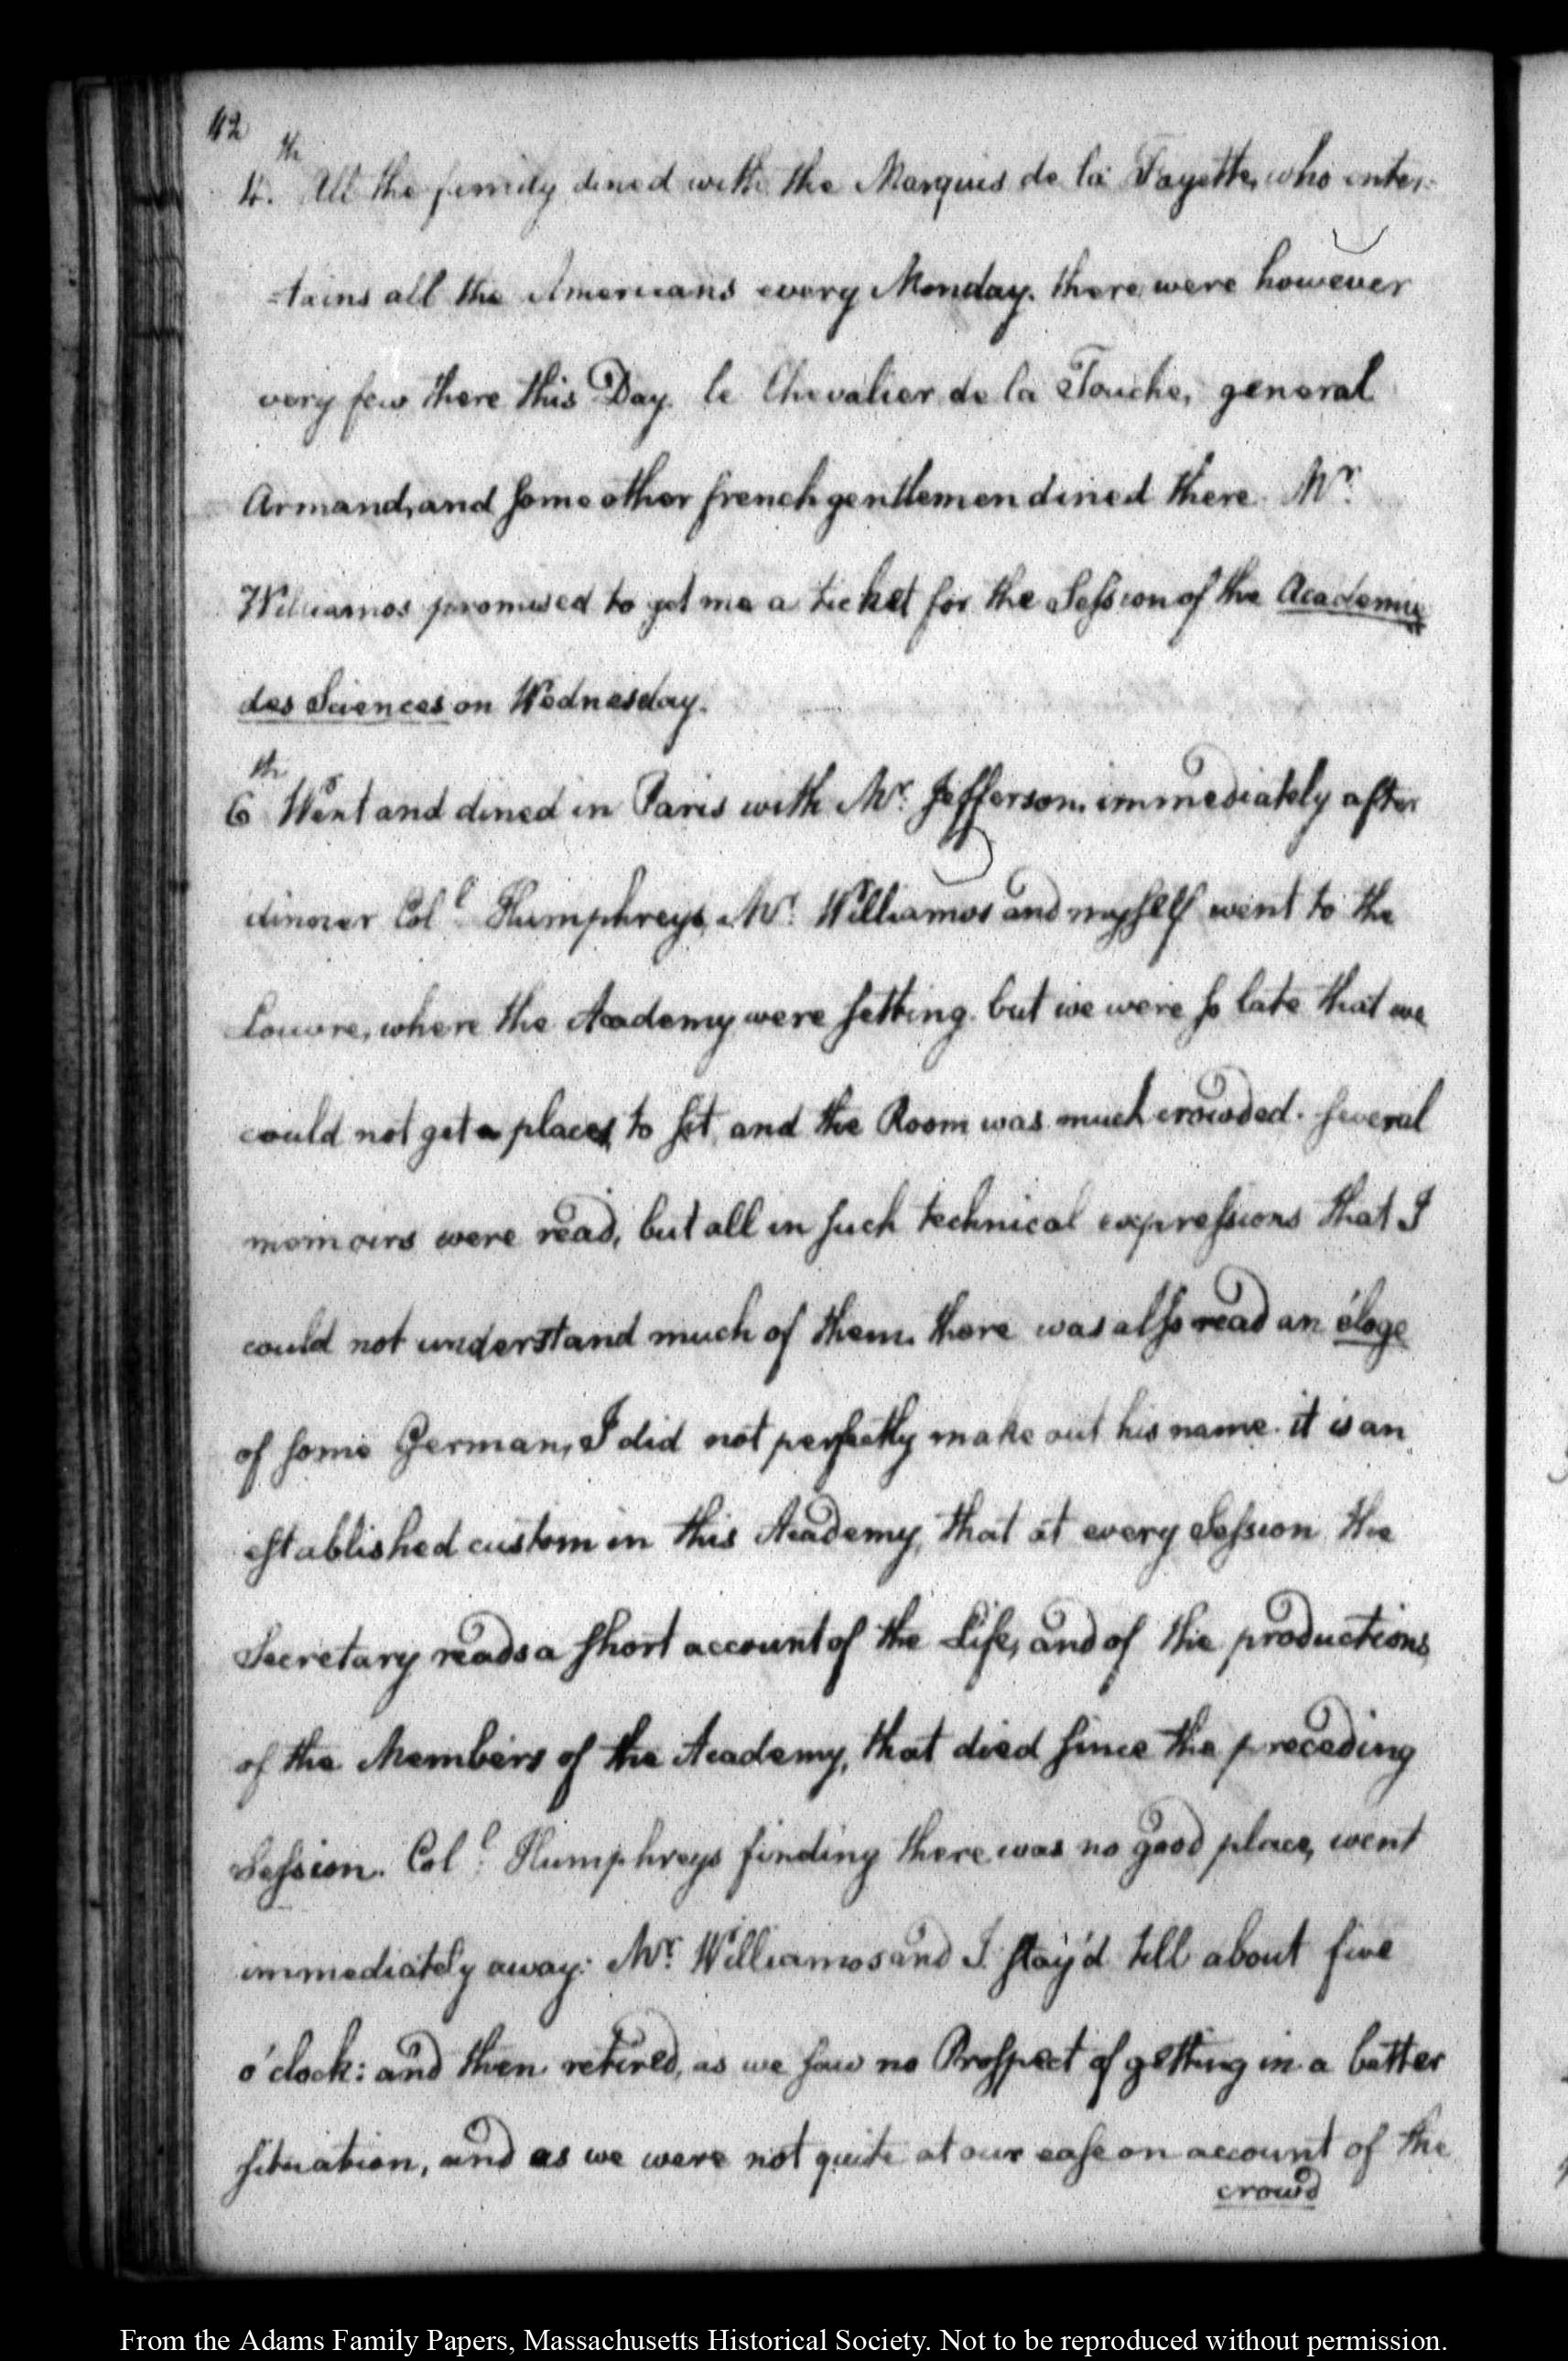 42
4.th All the family dined with the Marquis de la Fayette, who enter=
=tains all the Americans every Monday. there were however
very few there this Day. le Chevalier de la Touche, general
Armand, and some other french gentlemen dined there. Mr.
Williamos promised to get me a ticket for the Session of the Academie
des Sciences on Wednesday.
6th Went and dined in Paris with Mr. Jefferson. immediately after
dinner Coll. Humphreys, Mr. Williamos and myself went to the
Louvre, where the Academy were setting. but we were so late that we
could not get a places to sit, and the Room was much crowded. several
memoirs were read, but all in such technical expressions that I
could not understand much of them. there was also read an éloge
of some German, I did not perfectly make out his name. it is an
established custom in this Academy, that at every Session the
Secretary reads a short account of the Life, and of the productions
of the Members of the Academy, that died since the preceding
Session. Coll. Humphreys finding there was no good place, went
immediately away: Mr. Williamos and I stay'd till about five
o'clock: and then retired, as we saw no Prospect of getting in a better
situation, and as we were not quite at our ease on account of the
crowd
From the Adams Family Papers, Massachusetts Historical Society. Not to be reproduced without permission.